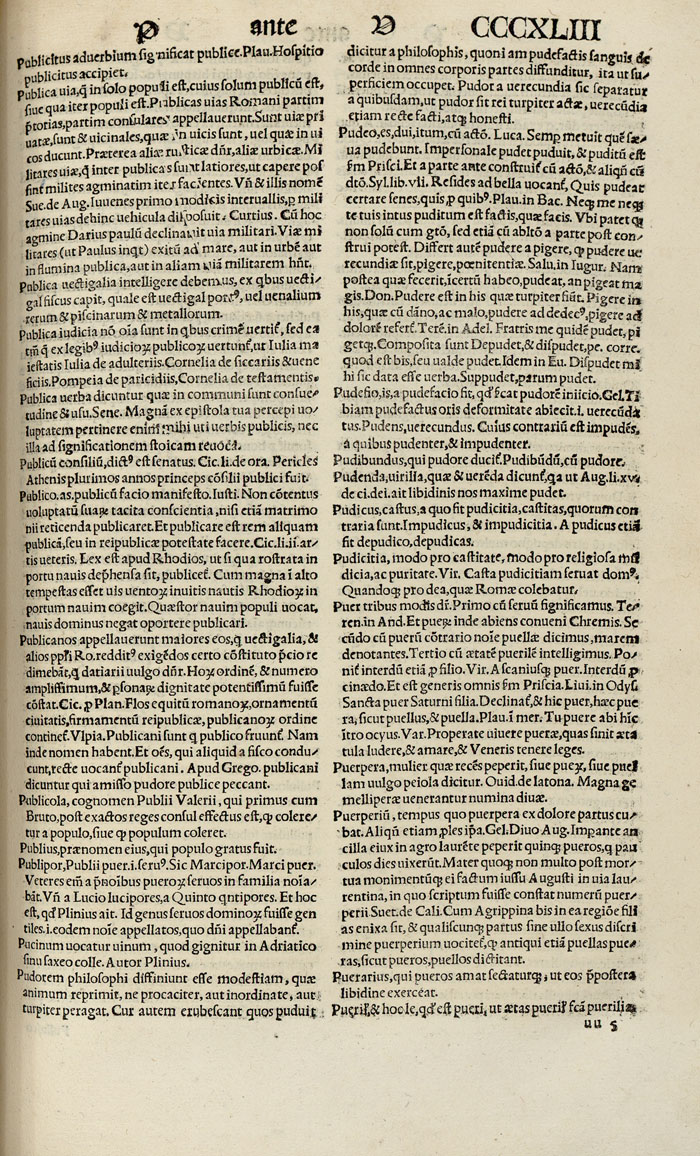 P ante V CCCXLIII
Publicitus aduerbium significat publice. Plau. Hospitio
publicitus accipiet.
Publica uia, q̃ in solo populi est, cuius solum publicũ est,
siue qua iter populi est. Publicas uias Romani partim
p̃torias, partim consulares appellauerunt. Sunt uiæ pri
uatæ, sunt & uicinales, quæ in uicis sunt, uel quæ in ui
cos ducunt. Præterea aliæ rusticæ dñr, aliæ urbicæ. Mi
litares uiæ, q̃ inter publicas sunt latiores, ut capere pos
sint milites agminatim iter facientes. Vñ & illis nomẽ
Sue. de Aug. Iuuenes primo modicis interuallis, p mili
tares uias dehinc uehicula disposuit. Curtius. Cũ hoc
agmine Darius paulũ declinauit uia militari. Viæ mi
litares (ut Paulus inqt) exitũ ad mare, aut in urbẽ aut
in flumina publica, aut in aliam uiã militarem hñt.
Publica uectigalia intelligere debemus, ex qbus uecti/
gal fiscus capit, quale est uectigal portꝰ, uel uenalium
rerum & piscinarum & metallorum.
Publica iudicia nõ oĩa sunt in qbus crimẽ uertit̃, sed ea
tm̃ q̃ ex legibꝰ iudicioꝝ publicoꝝ uertunt̃, ut Iulia ma
iestatis Iulia de adulteriis. Cornelia de siccariis & uene
ficiis. Pompeia de paricidiis, Cornelia de testamentis.
Publica uerba dicuntur quæ in communi sunt consue/
tudine & usu. Sene. Magnã ex epistola tua percepi uo/
luptatem pertinere enim mihi uti uerbis publicis, nec
illa ad significationem stoicam reuoca.
Publicũ consiliũ, dictꝰ est senatus. Cic. li. de ora. Pericles
Athenis plurimos annos princeps cõsilii publici fuit.
Publico. as. publicũ facio manifesto. Iusti. Non cõtentus
uoluptatũ suaꝝ tacita conscientia, nisi etiã matrimo
nii reticenda publicaret. Et publicare est rem aliquam
publicã, seu in reipublicæ potestate facere. Cic. li. ii. ar/
tis ueteris. Lex est apud Rhodios, ut si qua rostrata in
portu nauis dep̃hensa sit, publicet̃. Cum magna ĩ alto
tempestas esset uis uentoꝝ inuitis nautis Rhodioꝝ in
portum nauim coegit. Quæstor nauim populi uocat,
nauis dominus negat oportere publicari.
Publicanos appellauerunt maiores eos, q uectigalia, &
alios pp̃li Ro. redditꝰ exigẽdos certo cõstituto p̃cio re
dimebãt, q datiarii uulgo dñr. Hoꝝ ordinẽ, & numero
amplissimum, & psonaꝝ dignitate potentissimũ fuisse
cõstat. Cic. p Plan. Flos equitũ romanoꝝ, ornamentũ
ciuitatis, firmamentũ reipublicæ, publicanoꝝ ordine
continet̃. Vlpia. Publicani sunt q publico fruunt̃. Nam
inde nomen habent. Et oẽs, qui aliquid a fisco condu/
cunt, recte uocant̃ publicani. Apud Grego. publicani
dicuntur qui amisso pudore publice peccant.
Publicola, cognomen Publii Valerii, qui primus cum
Bruto, post exactos reges consul effectus est, ꝙ colere/
tur a populo, siue ꝙ populum coleret.
Publius, prænomen eius, qui populo gratus fuit.
Publipor, Publii puer. i. seruꝰ. Sic Marcipor. Marci puer.
Veteres em̃ a p̃noĩbus pueroꝝ seruos in familia noĩa/
bãt. Vñ a Lucio lucipores, a Quinto qntipores. Et hoc
est, qd̃ Plinius ait. Id genus seruos dominoꝝ fuisse gen
tiles. i. eodem noĩe appellatos, quo dñi appellabant̃.
Pucinum uocatur uinum, quod gignitur in Adriatico
sinu saxeo colle. Autor Plinius.
Pudorem philosophi diffiniunt esse modestiam, quæ
animum reprimit, ne procaciter, aut inordinate, aut
turpiter peragat. Cur autem erubescant quos puduit
dicitur a philosophis, quoniam pudefactis sanguis de
corde in omnes corporis partes diffunditur, ita ut su/
perficiem occupet. Pudor a uerecundia sic separatur
a quibusdam, ut pudor sit rei turpiter actæ, uerecũdia
etiam recte facti, atqꝫ honesti.
Pudeo, es, dui, itum, cũ actõ. Luca. Semp metuit quẽ sæ/
ua pudebunt. Impersonale pudet puduit, & puditũ est
fm Prisci. Et a parte ante construit̃ cũ actõ, & aliqñ cũ
dtõ. Syl. lib. vii. Resides ad bella uocant̃, Quis pudeat
certare senes, quis, p quibꝰ. Plau. in Bac. Neqꝫ me neqꝫ
te tuis intus puditum est factis, quæ facis. Vbi patet ꝙ
non solũ cum gtõ, sed etiã cũ abltõ a parte post con/
strui potest. Differt autẽ pudere a pigere, ꝙ pudere ue
recundiæ sit, pigere, pœnitentiæ. Salu. in Iugur. Nam
postea quæ fecerit, icertũ habeo, pudeat, an pigeat ma
gis. Don. Pudere est in his quæ turpiter fiũt. Pigere in
his, quæ cũ dãno, ac malo, pudere ad dedecꝰ, pigere ad
dolorẽ refert̃. Terẽ. in Adel. Fratris me quidẽ pudet, pi
getqꝫ. Composita sunt Depudet, & dispudet, pe. corre.
quod est bis, seu ualde pudet. Idem in Eu. Dispudet mi
hi sic data esse uerba. Suppudet, parum pudet.
Pudefio, is, a pudefacio fit, qd̃ est pudorẽ iniicio. Gel. Ti
biam pudefactus oris deformitate abiecit. i. uerecũda
tus. Pudens, uerecundus. Cuius contrariũ est impudẽs,
a quibus pudenter, & impudenter.
Pudibundus, qui pudore ducit̃. Pudibũdũ, cũ pudore.
Pudenda, uirilia, quæ & uerẽda dicunt̃, qa ut Aug. li. xv.
de ci. dei. ait libidinis nos maxime pudet.
Pudicus, castus, a quo fit pudicitia, castitas, quorum con
traria sunt. Impudicus, & impudicitia. A pudicus etiã
fit depudico, depudicas.
Pudicitia, modo pro castitate, modo pro religiosa mũ
dicia, ac puritate. Vir. Casta pudicitiam seruat domꝰ.
Quandoqꝫ pro dea, quæ Romæ colebatur.
Puer tribus modis dr̃. Primo cũ seruũ significamus. Te/
ren. in And. Et pueꝝ inde abiens conueni Chremis. Se
cũdo cũ puerũ cõtrario noĩe puellæ dicimus, marem
denotantes. Tertio cũ ætatẽ puerilẽ intelligimus. Po
nit̃ interdũ etiã p filio. Vir. Ascaniusqꝫ puer. Interdũ p
cinædo. Et est generis omnis fm Priscia. Liui. in Odys
Sancta puer Saturni filia. Declinat̃, & hic puer, hæc pue
ra, sicut puellus, & puella. Plau. ĩ mer. Tu puere abi hĩc
ĩtro ocyus. Var. Properate uiuere pueræ, quas sinit æta
tula ludere, & amare, & Veneris tenere leges.
Puerpera, mulier quæ recẽs peperit, siue pueꝝ, siue puel
lam uulgo peiola dicitur. Ouid. de latona. Magna ge
melliperæ uenerantur numina diuæ.
Puerperiũ, tempus quo puerpera ex dolore partus cu/
bat. Aliqñ etiam, ples ip̃a. Gel. Diuo Aug. impante an
cilla eiux in agro laurẽte peperit quinqꝫ pueros, ꝙ pau
culos dies uixerũt. Mater quoqꝫ non multo post mor/
tua monimentũqꝫ ei factum iussu Augusti in uia lau/
rentina, in quo scriptum fuisse constat numerũ puer/
perii Suet. de Cali. Cum Agrippina bis in ea regiõe fili
as enixa sit, & qualiscunqꝫ partus sine ullo sexus discri
mine puerperium uocitet̃, ꝙ antiqui etiã puellas pue/
ras, sicut pueros, puellos dictitant.
Puerarius, qui pueros amat sectaturqꝫ, ut eos p̃postera
libidine exerceat.
Pueril̃, & hoc le, qd̃ est pueri, ut ætas pueril̃ fcã puerilia,
uu 5